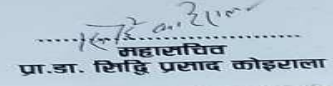 महासचिव
प्रा.डा. सिद्धि प्रसाद कोइराला